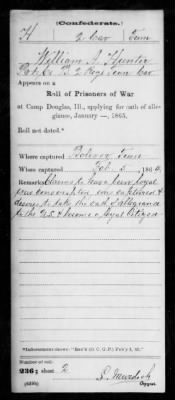 (Confederate.)
H 2 Cav Tenn
William J. Hunter
Pvt Co B 2 Regt Tenn Cav
Appears on a
Roll of Prisoners of War
at Camp Douglas, Ill., applying for oath of alle-
giance, January —, 1865.
Roll not dated.*
Where captured Bolivar Tenn
When captured Feb. 5, 186
Remarks: Claims to have been loyal
was conscripted, was captured &
desires to take the oath of allegiance
to the U.S. & become a loyal citizen
Number of roll:
236; sheet 2
Copyist.